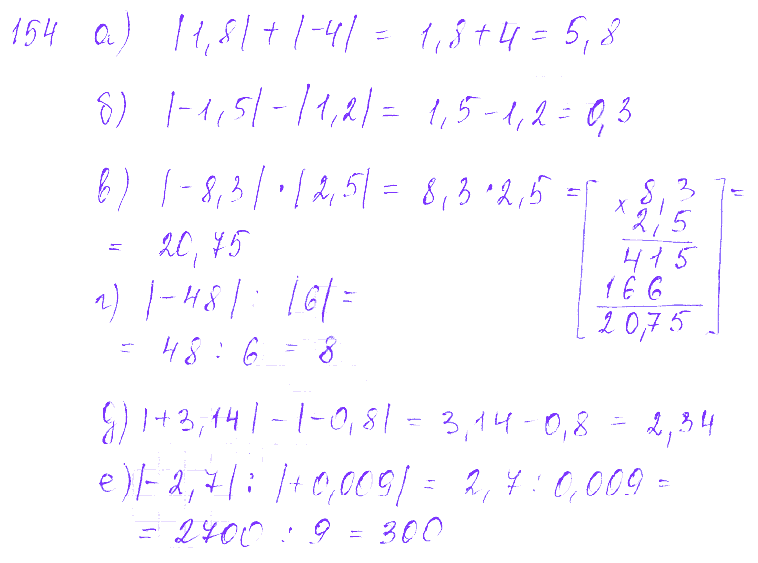 154 а) |1,8| + |-4| = 1,8 + 4 = 5,8
б) |-1,5| - |1,2| = 1,5 - 1,2 = 0,3
в) |-8,3| · |2,5| = 8,3 · 2,5 = [ × 8,3
2,5
415
166
20,75 ] =
= 20,75
г) |-48| : |6| =
= 48 : 6 = 8
д) |+3,14| - |-0,8| = 3,14 - 0,8 = 2,34
е) |-2,7| : |+0,009| = 2,7 : 0,009 =
= 2700 : 9 = 300